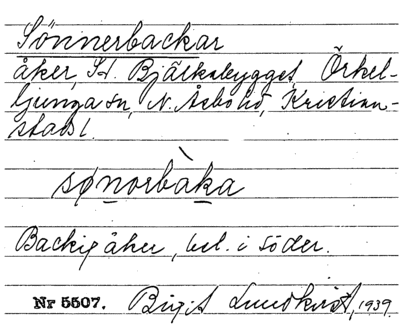 Sönnerbackar
åker, St. Bjälkabygget Örkel-
ljunga sn, N. Åsbo hd, Kristian-
stads l.
sønorbàka
Backig åker, bel. i söder.
Nr 5507. Birgit Lundkvist, 1939.